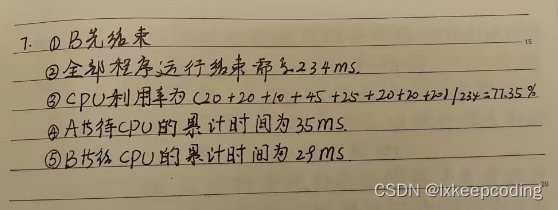 7. ① B先结束
15
② 全部程序运行结束都要234ms.
③ CPU利用率为(20+20+10+45+25+20+20+20)/234=77.35%
④ A等待CPU的累计时间为35ms.
⑤ B等待CPU的累计时间为29ms.
20
CSDN @lxkeepcoding